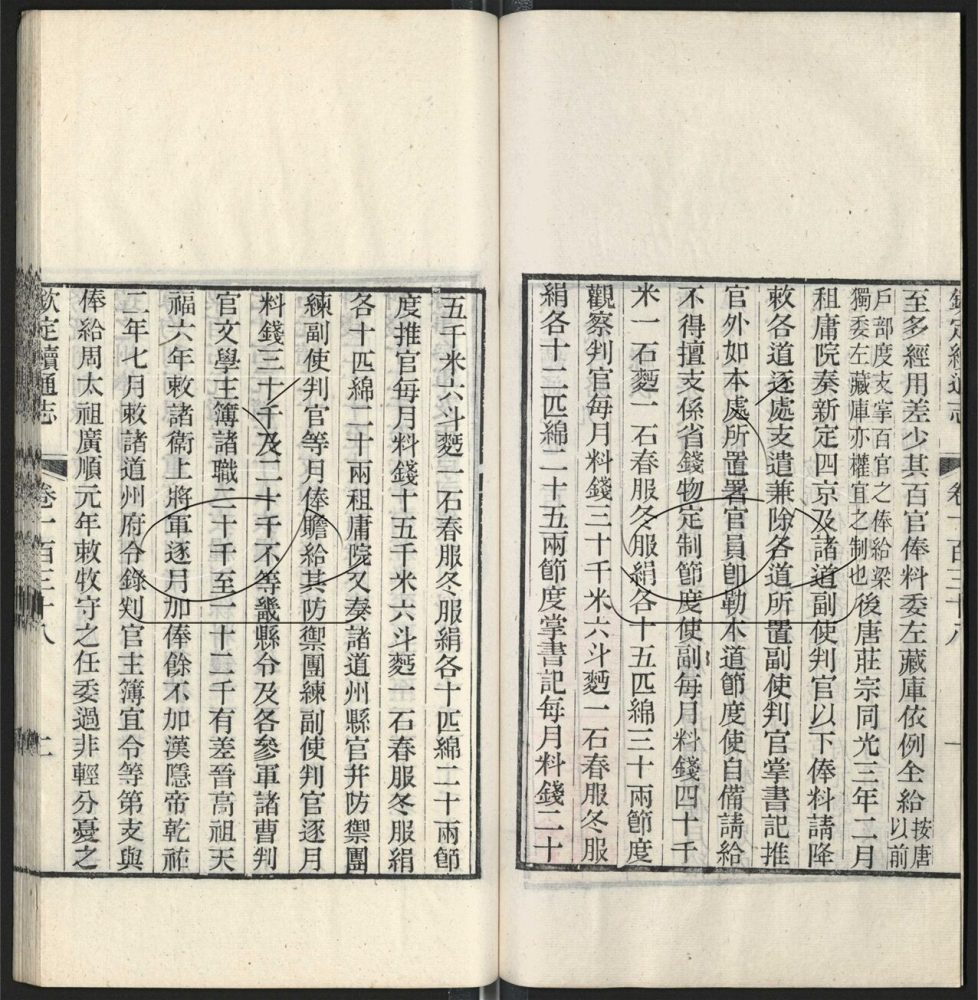 欽定續通志　卷一百三十八　一
至多經用差少其百官俸料委左藏庫依例全給按唐以前
戶部度支掌百官之俸給梁獨委左藏庫亦權宜之制也後唐莊宗同光三年二月
租庸院奏新定四京及諸道副使判官以下俸料請降
敕各道逐處支遣兼除各道所置副使判官掌書記推
官外如本處所置署官員卽勒本道節度使自備請給
不得擅支係省錢物定制節度使副每月料錢四十千
米一石麪一石春服冬服絹各十五匹綿三十兩節度
觀察判官每月料錢三十千米六斗麪一石春服冬服
絹各十二匹綿二十五兩節度掌書記每月料錢二十
五千米六斗麪一石春服冬服絹各十匹綿二十兩節
度推官每月料錢十五千米六斗麪一石春服冬服絹
各十匹綿二十兩租庸院又奏諸道州縣官幷防禦團
練副使判官等月俸贍給其防禦團練副使判官逐月
料錢三十千及二十千不等畿縣分及各參軍諸曹判
官文學主簿諸職二十千至一十二千有差晉高祖天
福六年敕諸衞上將軍逐月加俸餘不加漢隱帝乾祐
二年七月敕諸道州府令錄判官主簿宜令等第支與
俸給周太祖廣順元年敕牧守之任委過非輕分憂之
欽定續通志　卷一百三十八　二